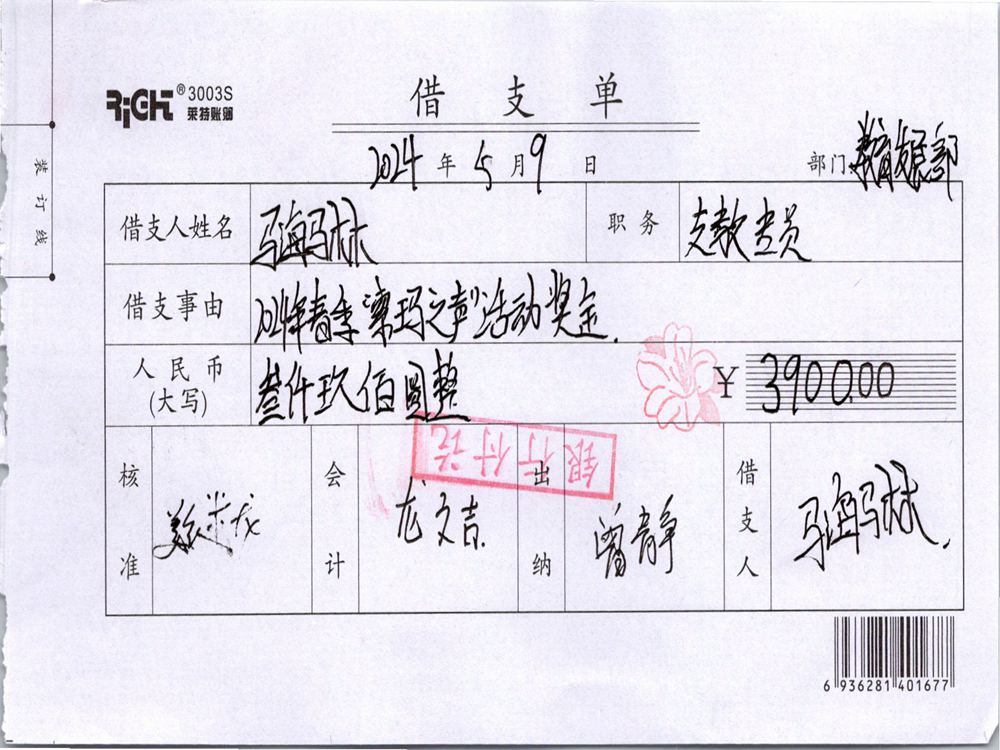 RiGHT® 3003S
莱特账簿
借支单
2024年5月9日
部门 教育发展部
装订线
借支人姓名 马海马林
职务 支教专员
借支事由 2024年春季“索玛之声”活动奖金.
人民币(大写) 叁仟玖佰圆整
¥ 3900.00
银行付讫
核准
会计 龙文吉.
出纳 曾静
借支人 马海马林.
6 936281 401677